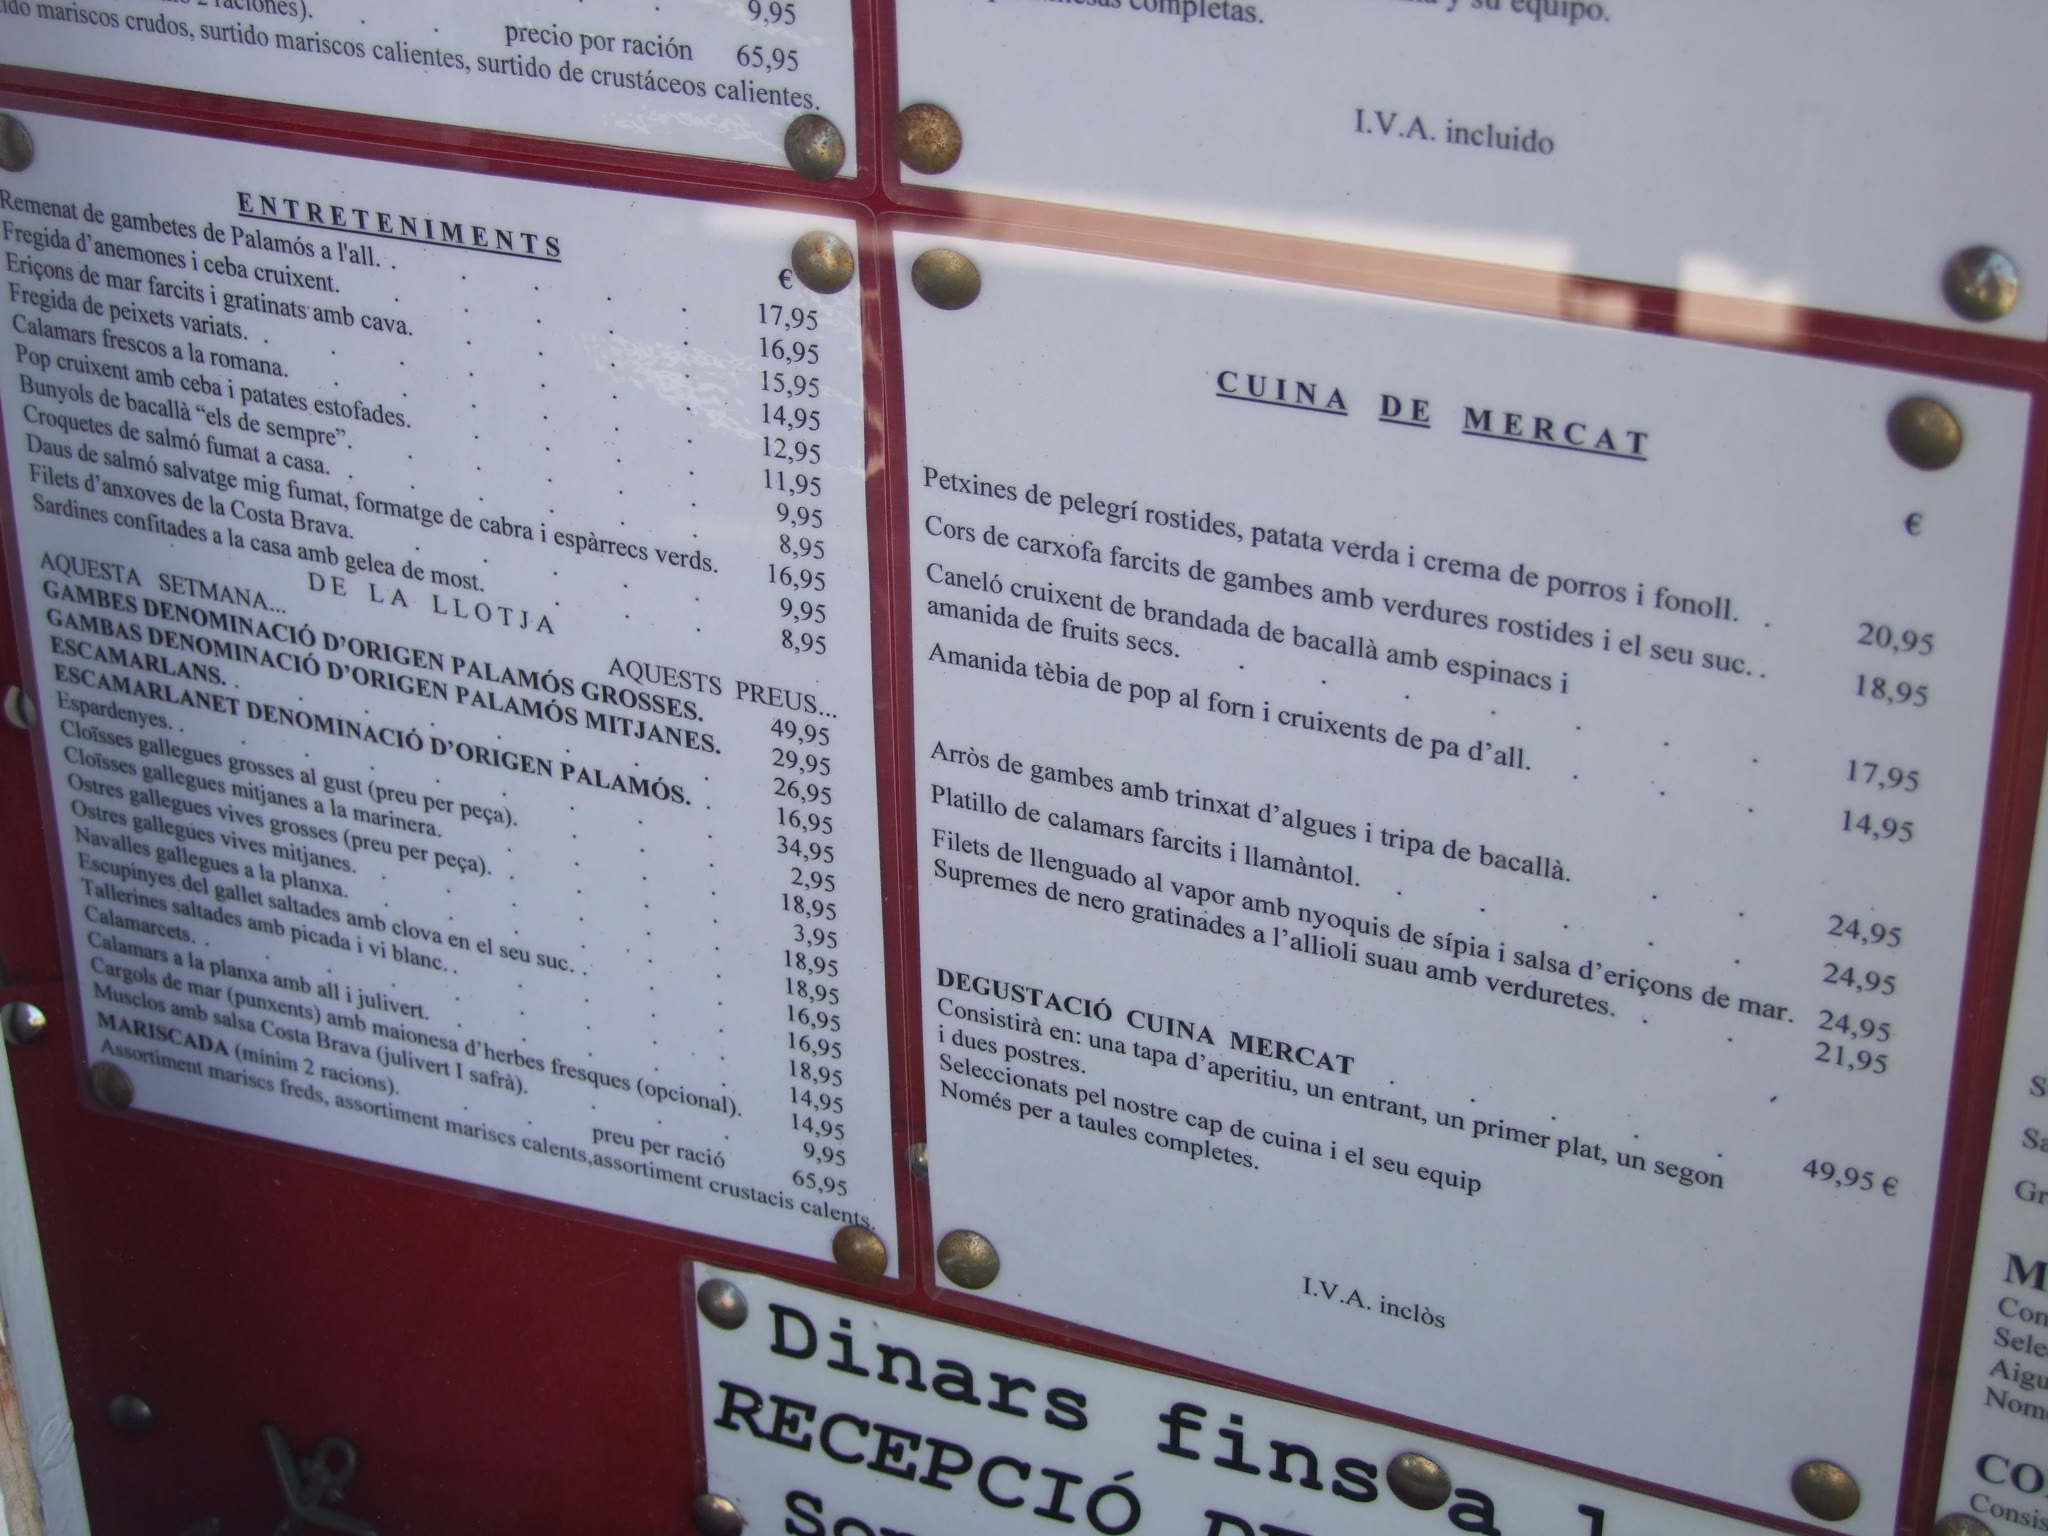 raciones).
9,95
precio por ración 65,95
mariscos crudos, surtido mariscos calientes, surtido de crustáceos calientes.
completas.
y su equipo.
I.V.A. incluido
ENTRETENIMENTS
€
Remenat de gambetes de Palamós a l'all. . 17,95
Fregida d'anemones i ceba cruixent. 16,95
Eriçons de mar farcits i gratinats amb cava. 15,95
Fregida de peixets variats. 14,95
Calamars frescos a la romana. 12,95
Pop cruixent amb ceba i patates estofades. 11,95
Bunyols de bacallà “els de sempre”. 9,95
Croquetes de salmó fumat a casa. 8,95
Daus de salmó salvatge mig fumat, formatge de cabra i espàrrecs verds. 16,95
Filets d'anxoves de la Costa Brava. 9,95
Sardines confitades a la casa amb gelea de most. 8,95
DE LA LLOTJA
AQUESTA SETMANA... AQUESTS PREUS...
GAMBES DENOMINACIÓ D'ORIGEN PALAMÓS GROSSES. 49,95
GAMBAS DENOMINACIÓ D'ORIGEN PALAMÓS MITJANES. 29,95
ESCAMARLANS. . 26,95
ESCAMARLANET DENOMINACIÓ D'ORIGEN PALAMÓS. . 16,95
Espardenyes. . 34,95
Cloïsses gallegues grosses al gust (preu per peça). 2,95
Cloïsses gallegues mitjanes a la marinera. 18,95
Ostres gallegues vives grosses (preu per peça). 3,95
Ostres gallegues vives mitjanes. 18,95
Navalles gallegues a la planxa. 18,95
Escupinyes del gallet saltades amb clova en el seu suc. . 16,95
Tallerines saltades amb picada i vi blanc. . 16,95
Calamarcets. . 18,95
Calamars a la planxa amb all i julivert. 14,95
Cargols de mar (punxents) amb maionesa d'herbes fresques (opcional). 14,95
Musclos amb salsa Costa Brava (julivert I safrà). 9,95
MARISCADA (mínim 2 racions). preu per ració 65,95
Assortiment mariscs freds, assortiment mariscs calents,assortiment crustacis calents.
CUINA DE MERCAT
€
Petxines de pelegrí rostides, patata verda i crema de porros i fonoll. . 20,95
Cors de carxofa farcits de gambes amb verdures rostides i el seu suc. . 18,95
Caneló cruixent de brandada de bacallà amb espinacs i
amanida de fruits secs. 17,95
Amanida tèbia de pop al forn i cruixents de pa d'all. 14,95
Arròs de gambes amb trinxat d'algues i tripa de bacallà. 24,95
Platillo de calamars farcits i llamàntol. 24,95
Filets de llenguado al vapor amb nyoquis de sípia i salsa d'eriçons de mar. 24,95
Supremes de nero gratinades a l'allioli suau amb verduretes. 21,95
DEGUSTACIÓ CUINA MERCAT 49,95 €
Consistirà en: una tapa d'aperitiu, un entrant, un primer plat, un segon
i dues postres.
Seleccionats pel nostre cap de cuina i el seu equip
Només per a taules completes.
I.V.A. inclòs
Dinars fins a
RECEPCIÓ